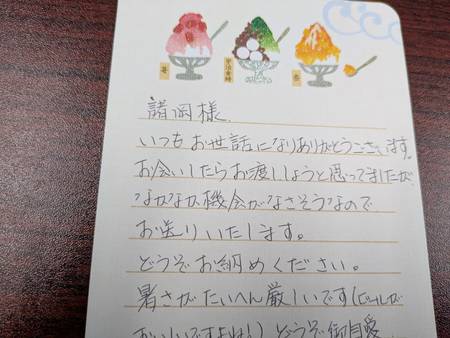 苺
宇治金時
杏
諸岡様
いつもお世話になりありがとうございます。
お会いしたらお渡ししようと思ってましたが、
なかなか機会がなさそうなので
お送りいたします。
どうぞお納めください。
暑さがたいへん厳しいです(ビールが
おいしいですよね!)どうぞ御自愛